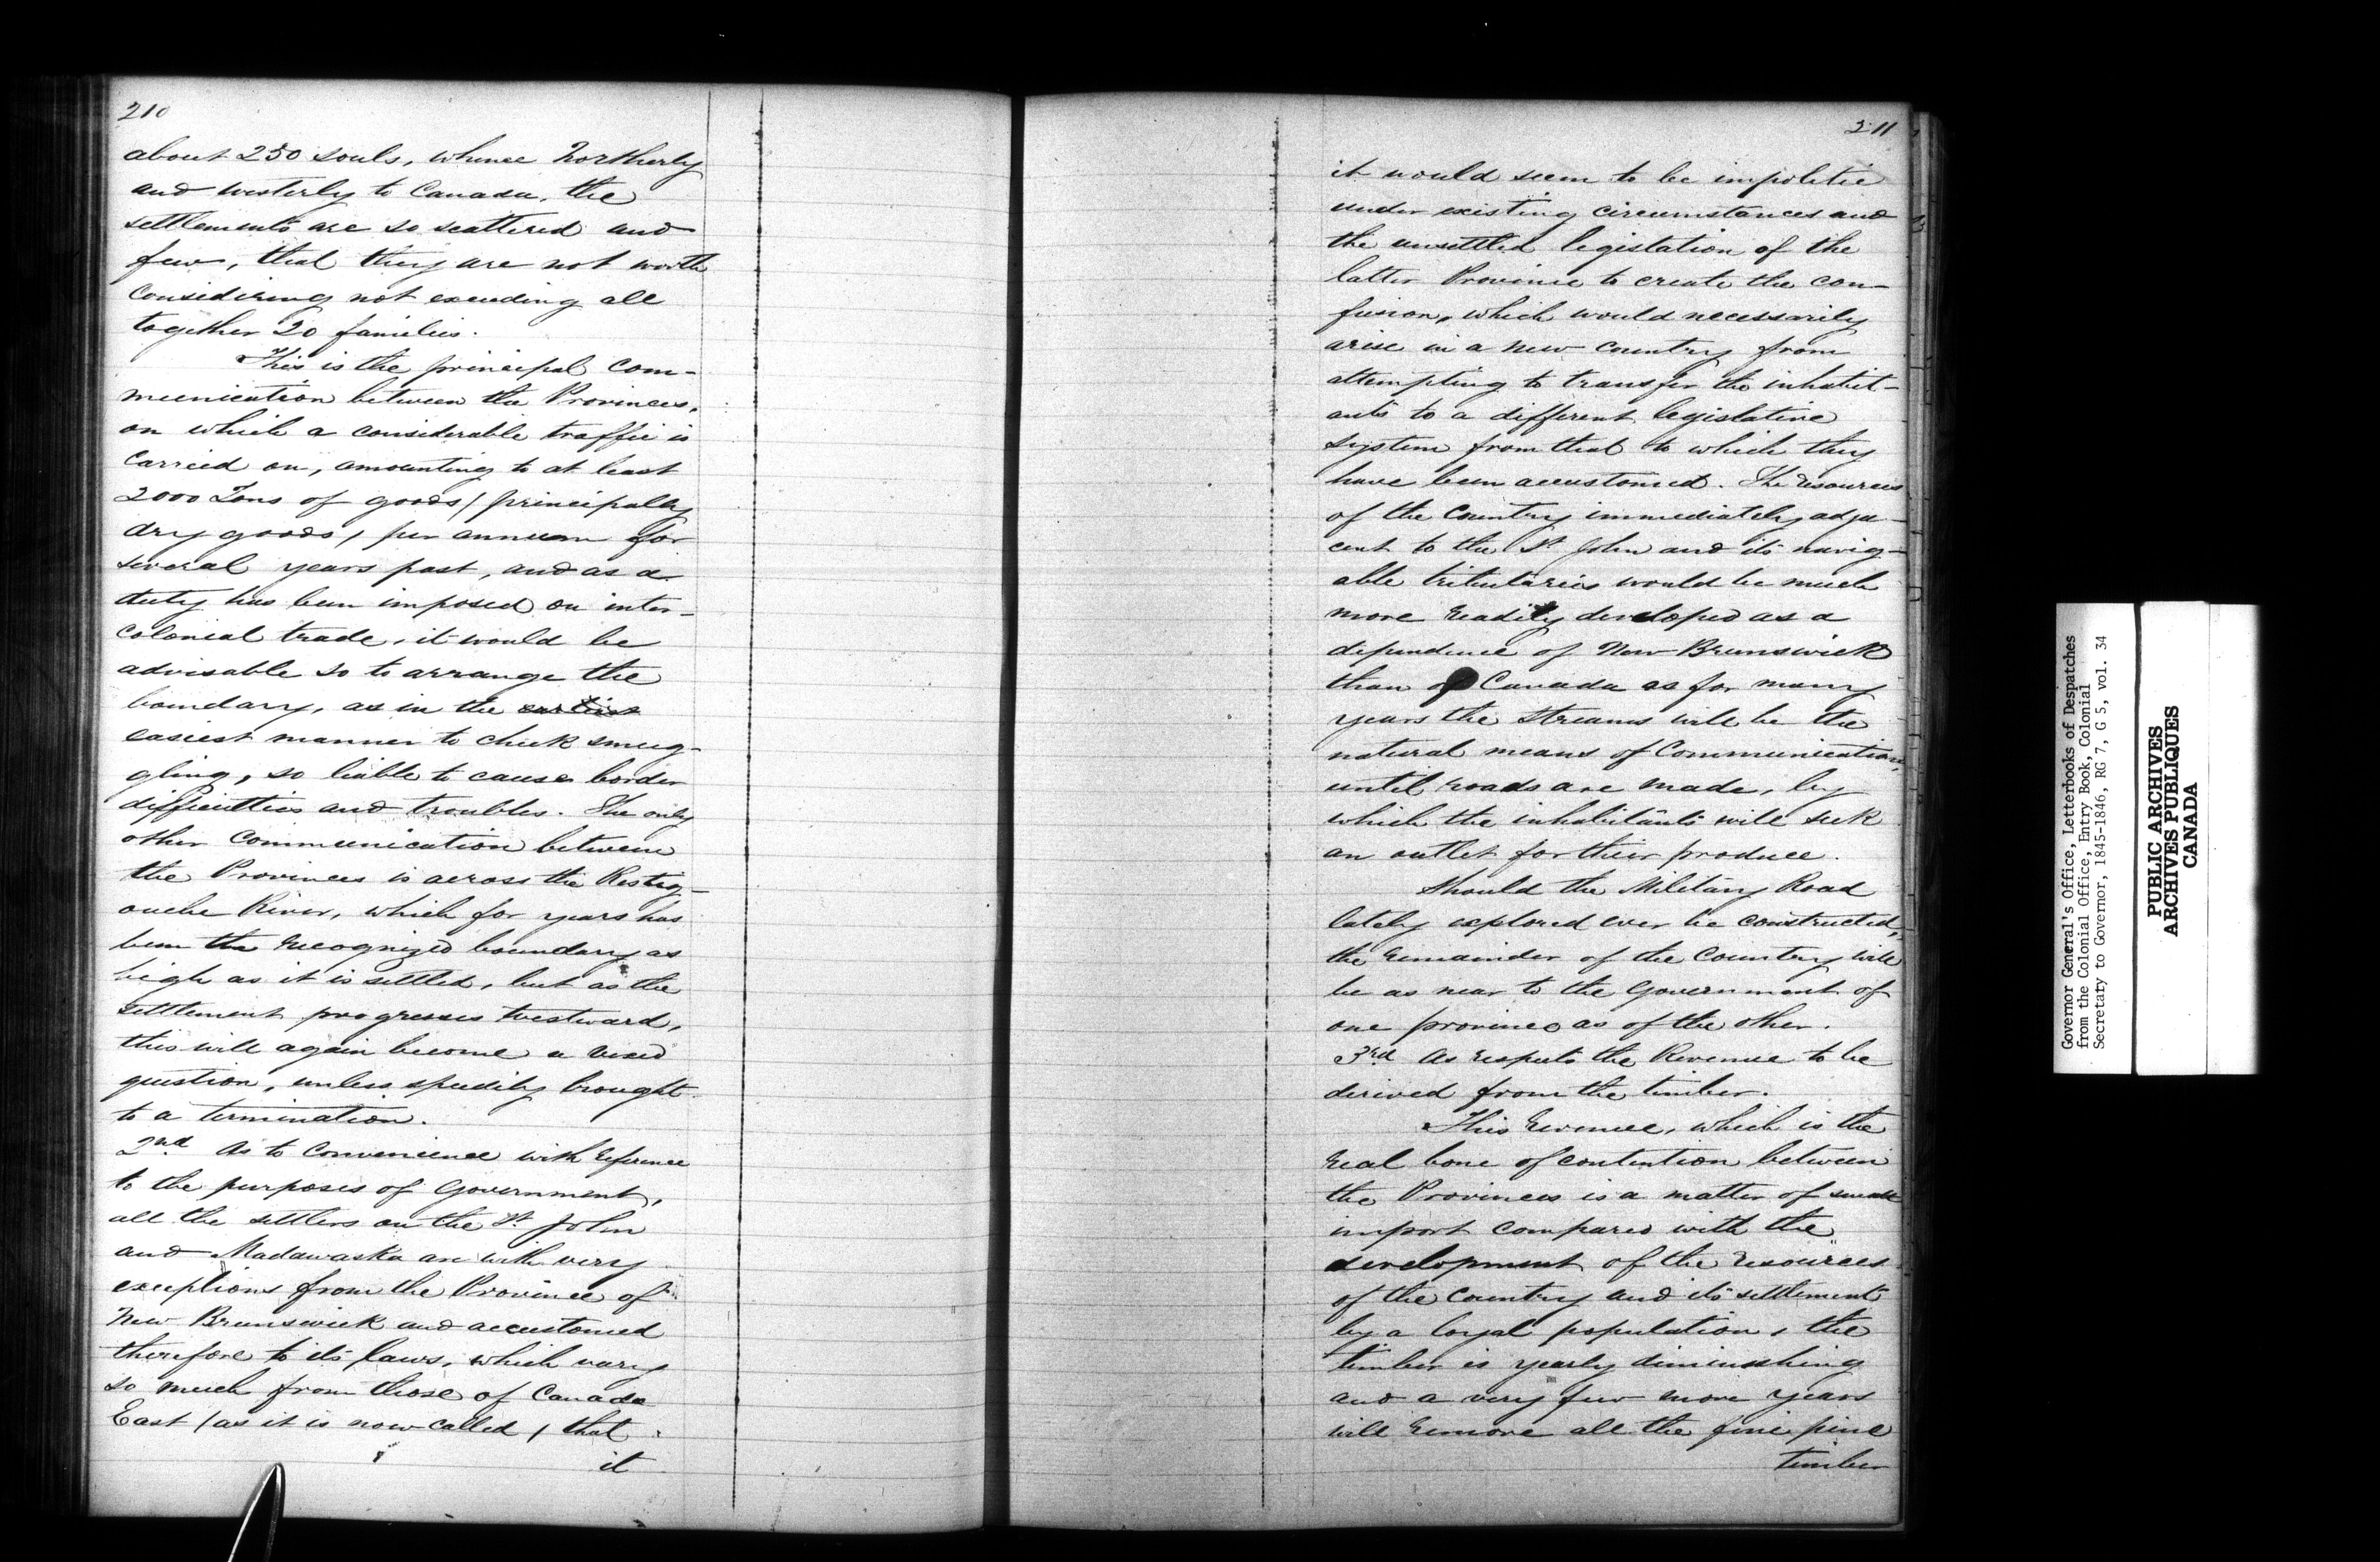 210
about 250 souls, whence Northerly
and westerly to Canada, the
settlements are so scattered and
few, that they are not worth
considering not exceeding all
together 20 families.
This is the principal com-
munication between the Provinces,
on which a considerable traffic is
carried on, amounting to at least
2000 Tons of goods / principally
dry goods / per annum for
several years past, and as a
duty has been imposed on inter-
colonial trade, it would be
advisable so to arrange the
boundary, as in the
easiest manner to check smug-
gling, so liable to cause border
difficulties and troubles. The only
other communication between
the Provinces is across the Restig-
ouche River, which for years has
been the recognized boundary as
high as it is settled, but as the
settlement progresses westward,
this will again become a vexed
question, unless speedily brought
to a termination.
2nd As to convenience with reference
to the purposes of Government,
all the settlers on the St John
and Madawaska are with very
exceptions from the Province of
New Brunswick and accustomed
therefore to its laws, which vary
so much from those of Canada
East / as it is now called / that
it
211
it would seem to be impolitic
under existing circumstances and
the unsettled legislation of the
latter Province to create the con-
fusion, which would necessarily
arise in a new country from
attempting to transfer the inhabit-
ants to a different legislative
system from that to which they
have been accustomed. The resources
of the Country immediately adja-
cent to the St John and its navig-
able tributaries would be much
more readily developed as a
dependence of New Brunswick
than of Canada as for many
years the streams will be the
natural means of Communication,
until roads are made, by
which the inhabitants will seek
an outlet for their produce.
Should the Military Road
lately explored ever be constructed,
the remainder of the Country will
be as near to the Government of
one province as of the other.
3rd As respects the Revenue to be
derived from the timber.
This revenue, which is the
real bone of contention between
the Provinces is a matter of small
import compared with the
development of the resources
of the Country and its settlement
by a loyal population, the
timber is yearly diminishing
and a very few more years
will remove all the fine pine
timber
Governor General's Office, Letterbooks of Despatches
from the Colonial Office, Entry Book, Colonial
Secretary to Governor, 1845-1846, RG 7, G 5, vol. 34
PUBLIC ARCHIVES
ARCHIVES PUBLIQUES
CANADA